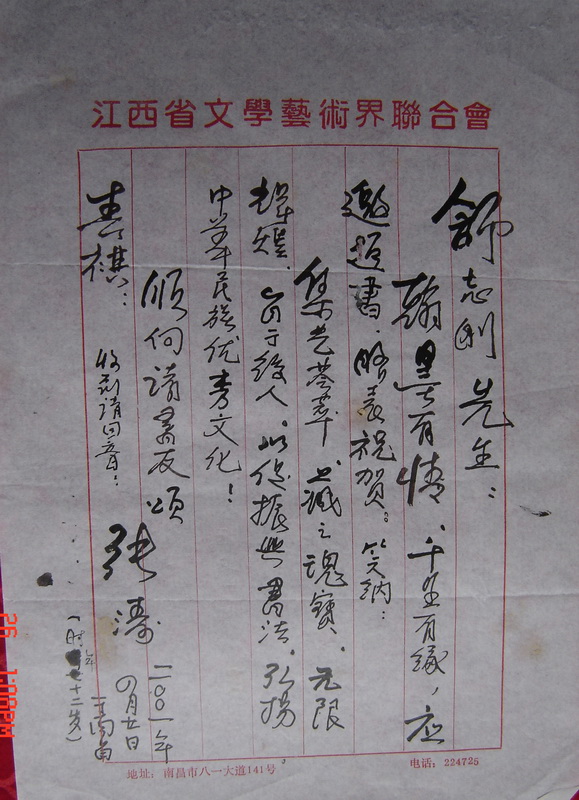 江西省文學藝術界聯合會
师志刚先生：
翰墨有情、千里有缘，应
邀题书、略表祝贺。笑纳：
集光荟萃 藏之瑰寶、无限
辉煌、育于後人。以促振興書法。弘扬
中华民族优秀文化！
顺向诸書友 颂
春祺：
收到请回音！
张涛
二〇〇一年
四月廿日
于南昌
（时年七十二岁）
地址：南昌市八一大道141号
电话：224726
26 1:00PM